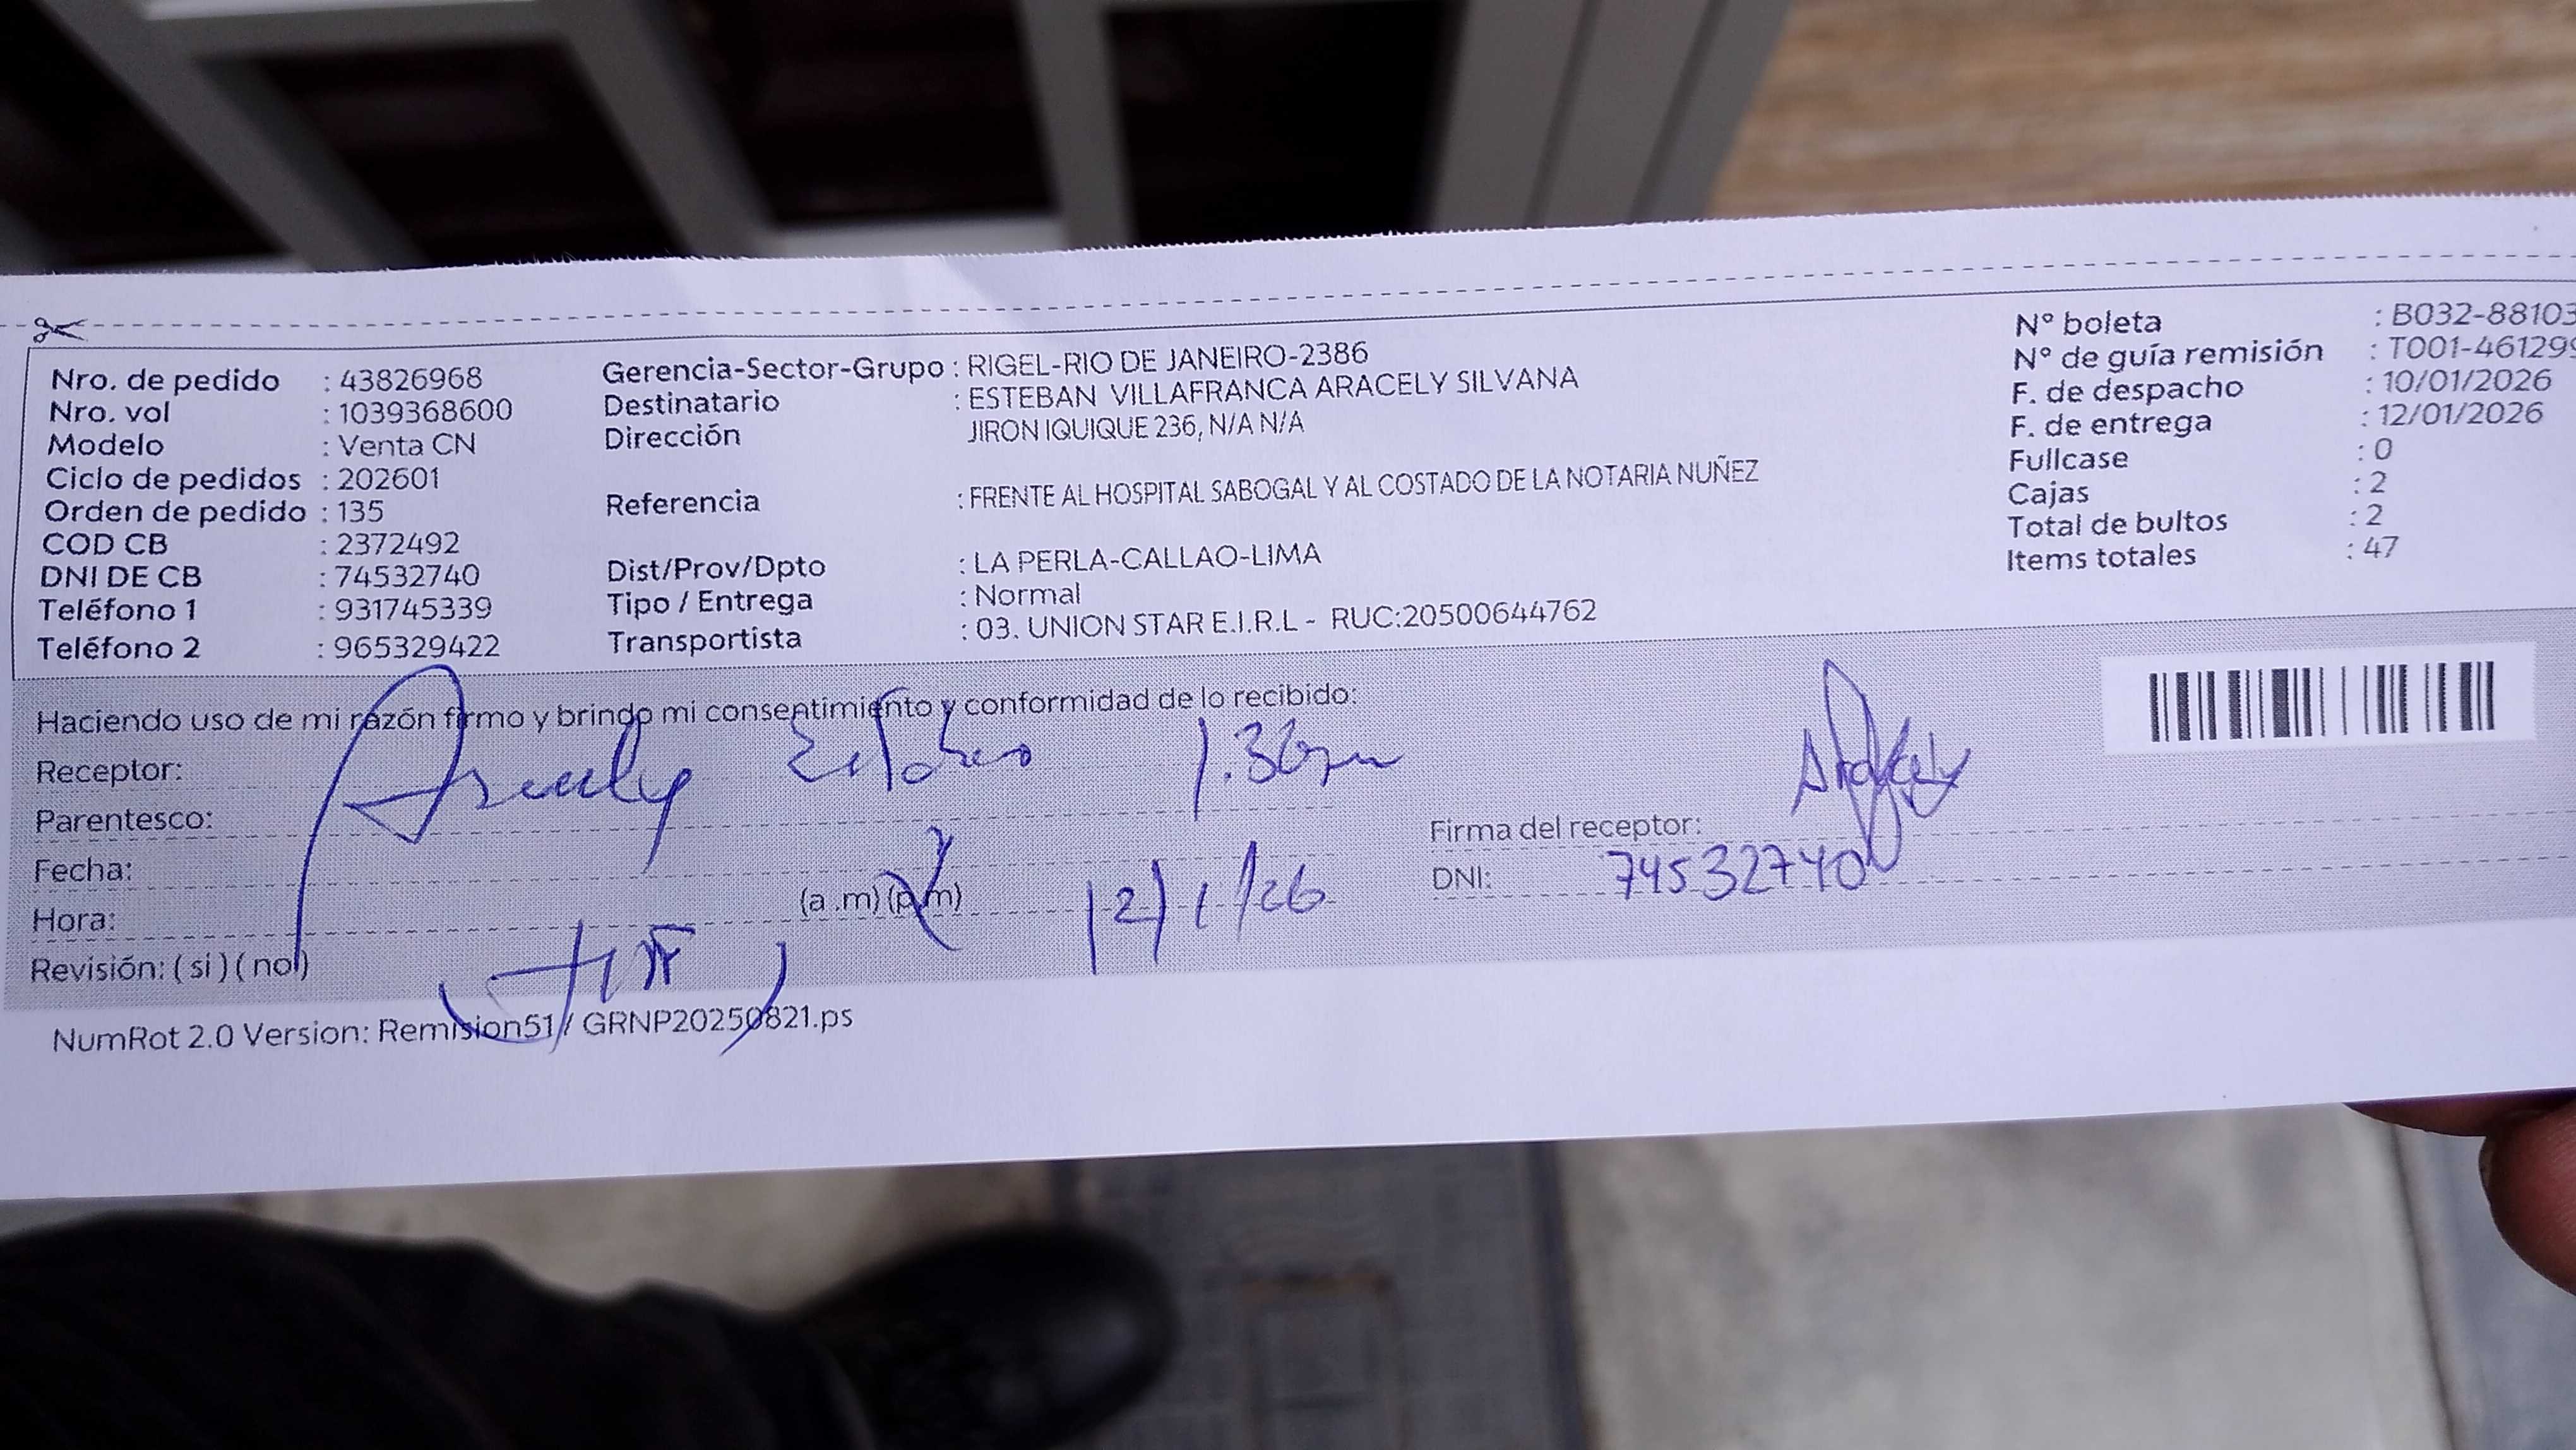 Nro. de pedido : 43826968
Nro. vol : 1039368600
Modelo : Venta CN
Ciclo de pedidos : 202601
Orden de pedido : 135
COD CB : 2372492
DNI DE CB : 74532740
Teléfono 1 : 931745339
Teléfono 2 : 965329422
Gerencia-Sector-Grupo : RIGEL-RIO DE JANEIRO-2386
Destinatario : ESTEBAN VILLAFRANCA ARACELY SILVANA
Dirección JIRON IQUIQUE 236, N/A N/A
Referencia : FRENTE AL HOSPITAL SABOGAL Y AL COSTADO DE LA NOTARIA NUÑEZ
Dist/Prov/Dpto : LA PERLA-CALLAO-LIMA
Tipo / Entrega : Normal
Transportista : 03. UNION STAR E.I.R.L - RUC:20500644762
N° boleta : B032-88103
N° de guía remisión : T001-461299
F. de despacho : 10/01/2026
F. de entrega : 12/01/2026
Fullcase : 0
Cajas : 2
Total de bultos : 2
Items totales : 47
Haciendo uso de mi razón firmo y brindo mi consentimiento y conformidad de lo recibido:
Receptor: Aracely 1.30pm
Parentesco:
Fecha:
Hora: (a .m) (p.m) 12/1/26
Revisión: ( si ) ( no )
Aracely
Firma del receptor:
DNI: 74532740
NumRot 2.0 Version: Remision51 / GRNP20250821.ps